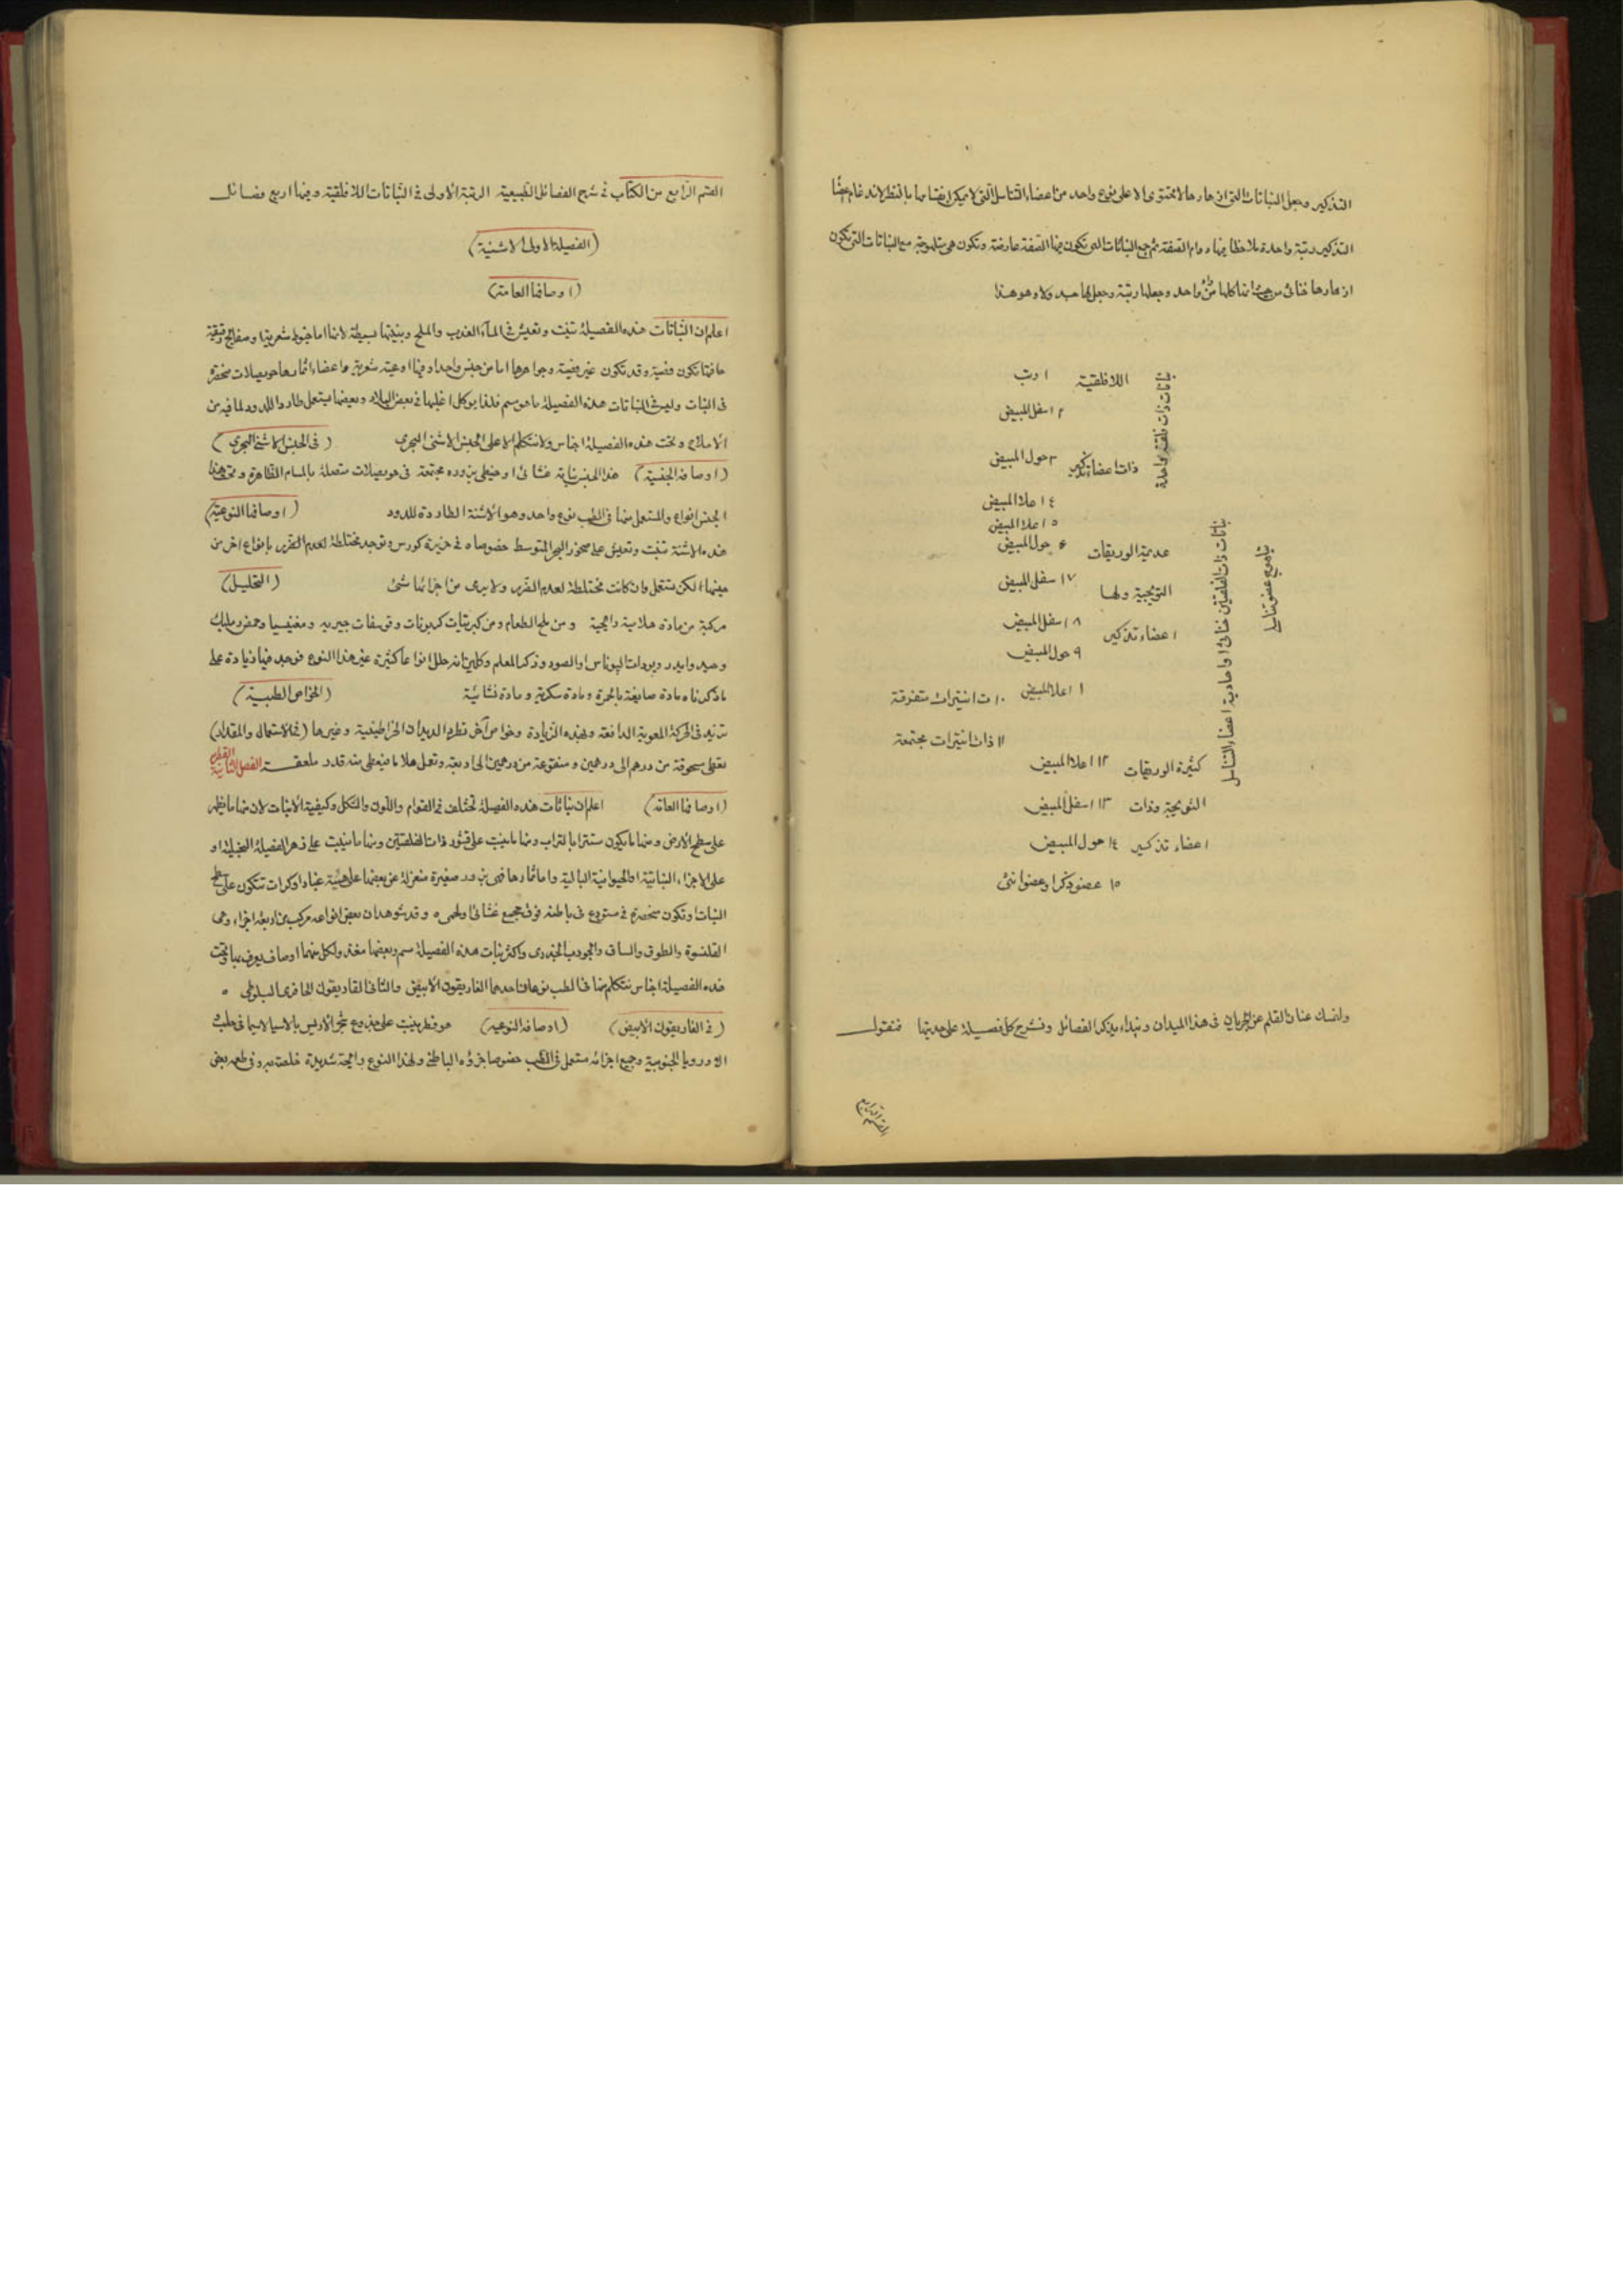 التذكير وجعل النباتات التى ازهارها لا تحتوى الا على نوع واحد من اعضاء التناسل التى لا يمكن
التذكير رتبة واحدة ملاحظا فيها دوام الصفة ثم جمع النباتات التى تكون فيها الصفة عارضة وتكون هى مع النباتات التى تكون
ازهارها خناثى من حيث انها كلها واحد وجعلها رتبة وجعل لها جدولا وهو هذا
نباتات ذات فلقة واحدة
اللافلقية ١ رتب
٢ اسفل المبيض
ذات اعضاء تذكير ٣ حول المبيض
٤ اعلا المبيض
نباتات ذات الفلقتين خناثى او احادية اعضاء التناسل
٥ اعلا المبيض
عديمة الوريقات ٦ حول المبيض
التويجية ولها ٧ اسفل المبيض
اعضاء تذكير ٨ اسفل المبيض
٩ حول المبيض
اعلا المبيض ١٠ ذات انتيرات متفرقة
١١ ذات انتيرات مجتمعة
كثيرة الوريقات ١٢ اعلا المبيض
التويجية وذات ١٣ اسفل المبيض
اعضاء تذكير ١٤ حول المبيض
١٥ عضو ذكر او عضو انثى
ولنمسك عنان القلم عن الجريان فى هذا الميدان ونبداء بذكر الفصائل ونشرح كل فصيلة على حدتها فنقول
القسم الرابع
القسم الرابع من الكتاب فى شرح الفصائل الطبيعية الرتبة الاولى فى النباتات اللافلقية وفيها اربع فصائل
(الفصيلة الاولى الاشنية)
(اوصافها العامة)
اعلم ان النباتات هذه الفصيلة تنبت وتعيش فى الماء العذب والملح وبنيتها بسيطة لانها اما خيوط شعرية او صفائح رقيقة
حافتها تكون وقد تكون غير وجواهرها اما من جنس واحد او فيها اوعية شعرية واعضاء اثمارها حويصلات منحصرة
فى النبات وليس فى النباتات هذه الفصيلة ما هو سم فلذا يوكل اغلبها فى بعض البلاد وبعضها يستعمل طاردا للدود لما فيه من
الاملاح وتحت هذه الفصيلة اجناس ولا نتكلم الا على الجنس الاشنى البحرى (فى الجنس الاشنى البحرى)
(اوصافه الجنسية) هذا الجنس نباته غشائى او خيطى بزوره مجتمعة فى حويصلات متصلة بالمسام الظاهرة وتحت هذا
الجنس انواع والمستعمل منها فى الطب نوع واحد وهو الاشنة الطاردة للدود (اوصافها النوعية)
هذه الاشنة تنبت وتعيش على صخور البحر المتوسط خصوصا فى جزيرة كورس وتوجد مختلطة لعدم التحرير بانواع اخر من
جنسها لكن تستعمل وان كانت مختلطة لعدم الضرر ولا يرمى من اجزائها شئ (التحليل)
مركبة من مادة هلامية ومن ملح الطعام ومن كبريتات كربونات وفوسفات جيرية ومغنيسيا وحمض سليك
وحديد وايدر ويودات البوتاس او الصود وذكر المعلم انه حلل انواعا كثيرة غير هذا النوع فوجد فيها زيادة على
ما ذكرناه مادة صابغة بالحمرة ومادة سكرية ومادة نشائية (الخواص الطبية)
تزيد فى الحركة المعوية الدافعة وبهذه الزيادة وخواص آخر تطرد الديدان الخراطينية وغيرها (فى الاستعمال والمقدار)
تعطى مسحوقة من درهم الى درهمين ومنقوعة من درهمين الى اربعة وتعمل هلاما فيعطى منه قدر ملعقة الفصيلة الثانية الفطرية
(اوصافها العامة) اعلم ان نباتات هذه الفصيلة تختلف فى القوام واللون والشكل وكيفية الانبات لان منها ما يظهر
على سطح الارض ومنها ما يكون مستترا بالتراب ومنها ما ينبت على قشور ذات الفلقتين ومنها ما ينبت على زهر الفصيلة النجيلية او
على الاجزاء النباتية او الحيوانية البالية واما اثمارها فهى بزور صغيرة منعزلة عن بعضها على هيئة غبار او كرات تتكون على سطح
النبات او تكون منحصرة فى مستودع فى باطنه فوق مجمع غشائى او لحمى وقد شوهد ان بعض انواعه مركب من اربعة اجزاء وهى
القلنسوة والطوق والساق والجورب الجذرى واكثر نبات هذه الفصيلة سم وبعضها مغذ ولكل منهما اوصاف يعرف بها وتحت
هذه الفصيلة اجناس نتكلم منها فى الطب نوعان احدهما الغاريقون الابيض والثانى الغاريقون الحافرى البلوطى
(فى الغاريقون الابيض) (اوصافه النوعية) هو فطر ينبت على جذوع شجر الاريس بالاسيا لاسيما فى حلب
الاوروبا الجنوبية وجميع اجزائه مستعمل فى الطب خصوصا جزؤه الباطن ولهذا النوع رائحة شديدة خاصة به وفى طعمه بعض